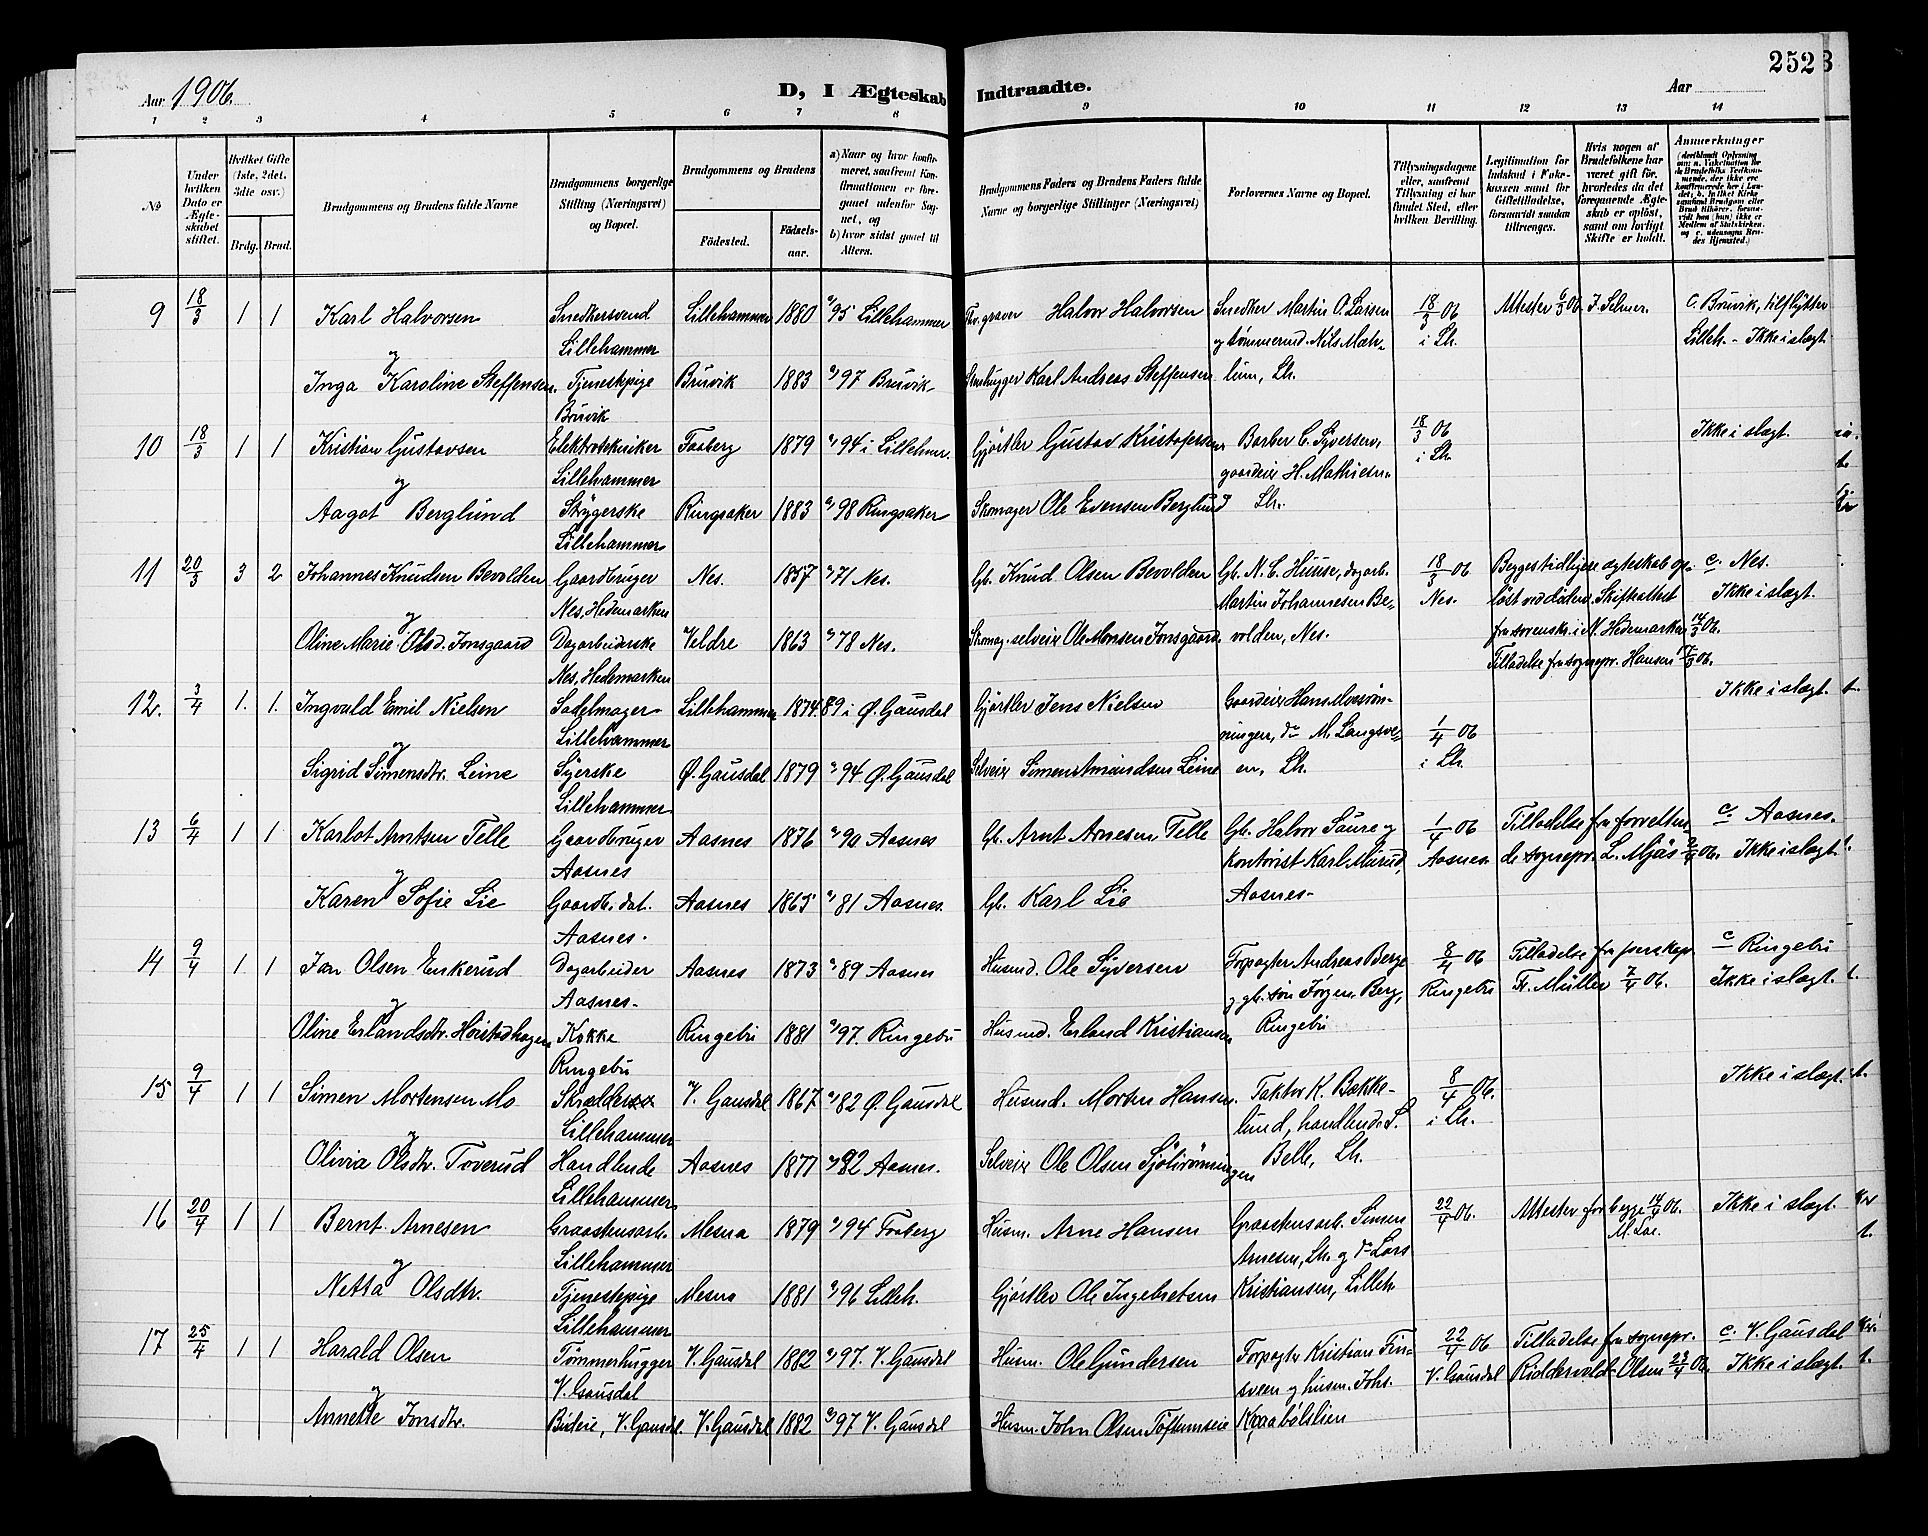 2528
Aar 1906. D, I Ægteskab Indtraadte. Aar
1 2 3 4 5 6 7 8 9 10 11 12 13 14
No
Under hvilken Dato er Ægteskabet stiftet.
Hvilket Gifte (1ste, 2det, 3die osv.)
Brdg. Brud.
Brudgommens og Brudens fulde Navne
Brudgommens borgerlige Stilling (Næringsvei) og Bopæl.
Brudgommens og Brudens
Födested. Födsels-aar.
a) Naar og hvor konfirmeret, samt om Konfirmationen er foregaaet udenfor Sognet, og
b) hvor sidst gaaet til Alters.
Brudgommens Faders og Brudens Faders fulde Navne og borgerlige Stillinger (Næringsvei)
Forlovernes Navne og Bopæl.
Tillysningsdagene eller, saafremt Tillysning ei har fundet Sted, efter hvilken Bevilling.
Legitimation for Indskud i Enkekassen samt for Giftetilladelse, forsaavidt saadan tiltrænges.
Hvis nogen af Brudefolkene har været gift för, hvorledes da det foregaaende Ægteskab er oplöst, samt om lovligt Skifte er holdt.
Anmerkninger
9 18/3 1 1 Karl Halvorsen Snedkersvend Lillehammer 1880 95 Lillehammer graver Halvor Halvorsen Snedker Martin O. Larsen 18/3 06 Attester 6/3 06 J. Selmer. c. Bruvik, tilflytter
og Lillehammer og tømmermd. Nils Mæh- i Lh. Lilleh. - Ikke i slægt
Inga Karoline Steffensen. Tjenestepige Bruvik 1883 97 Bruvik Stenhugger Karl Andreas Steffensen lum, Lh.
Bruvik
10 18/3 1 1 Kristian Gustavsen Elektrotekniker Faaberg 1879 94 i Lilleham. Gjørtler Gustav Kristofersen Barber C. Syversen, 18/3 06 Ikke i slægt.
og Lillehammer gaardeier H. Mathiesen i Lh.
Aagot Berglund Strygerske Ringsaker 1883 98 Ringsaker Skomager Ole Evensen Berglund Lh.
Lillehammer
11 20/3 3 2 Johannes Knudsen Bevolden Gaardbruger Nes. 1857 71 Nes. Gb. Knud Olsen Bevolden Gb. N. C. Huuse, dagarb. 18/3 06 Begges tidligere ægteskab op- c. Nes.
og Nes, Hedemarken Martin Johannesen Be- Nes. løst ved døden. Skifteattest Ikke i slægt.
Oline Marie Olsd. Jonsgaard Dagarbeiderske Veldre 1863 78 Nes. Skomag. selveier Ole Monsen Jonsgaard volden, Nes. fra sorenskr. i N. Hedemarken 14/3 06.
Nes, Hedemarken Tilladelse fra sognepr. Hansen 17/3 06.
12. 3/4 1. 1. Ingvald Emil Nielsen Sadelmager Lillehammer 1874 89 i Ø. Gausdal Gjørtler Jens Nielsen Gaardeier Hans 1/4 06 Ikke i slægt.
og Lillehammer ningen, do M. Langsve- i Lh.
Sigrid Simensdtr. Leine Syerske Ø. Gausdal 1879 94 Ø. Gausdal Selveier Simen Amundsen Leine en, Lh.
Lillehammer
13 6/4 1 1 Karlot Arntsen Telle Gaardbruger Aasnes 1876 90 Aasnes Gb. Arnt Arnesen Telle Gb. Halvor Saure og 1/4 06 Tilladelse fra forretten- c. Aasnes.
og Aasnes kontorist Karl Mirud, Aasnes. de sognepr. L. Mjøs 2/4 06. Ikke i slægt
Karen Sofie Lie Gaardb. dat. Aasnes 1865 81 Aasnes. Gb. Karl Lie Aasnes
Aasnes.
14 9/4 1 1 Jan Olsen Enkerud Dagarbeider Aasnes 1873 89 Aasnes Husmd. Ole Syversen Forpagter Andreas Berge 8/4 06 Tilladelse fra perskap. c. Ringebu
og Aasnes. og gb. søn Jørgen Berg, Ringebu Fr. Müller 7/4 06. Ikke i slægt
Oline Erlandsdtr. Harstadhagen Kokke Ringebu 1881 97. Ringebu Husmd. Erland Kristiansen Ringebu
Ringebu
15 9/4 1 1 Simen Mortensen Mo Skrædder V. Gausdal 1867 82 Ø. Gausdal Husmd. Morten Hansen Faktor K. Bakke- 8/4 06. Ikke i slægt.
og Lillehammer lund, handlende S. i Lh.
Olivia Olsdtr. Toverud Handlende Aasnes 1877 92 Aasnes. Selveier Ole Olsen Sjølirønningen Belle, Lh.
Lillehammer
16 20/4 1 1 Bernt Arnesen Graastensarb. Mesna 1879 94 Faaberg Husm. Arne Hansen Graastensarb. Simen 22/4 06. Attester for begge 14/4 06. Ikke i slægt.
og Lillehammer Arnesen, Lh. og do Lars M. Loe.
Netta Olsdtr. Tjenestepige Mesna 1881 96 Lilleh. Gjørtler Ole Ingebretsen Kristiansen, Lilleh.
Lillehammer
17 25/4 1 1 Harald Olsen Tømmerhugger V. Gausdal 1882 97. V. Gausdal Husm. Ole Gundersen Forpagter Kristian Fin- 22/4 06 Tilladelse fra sognepr. c. V. Gausdal
og V. Gausdal sveen og husm. Johs. V. Gausdal Riddervold-Olsen 23/4 06. Ikke i slægt.
Annette Jonsdtr. Budeie, V. Gausdal. V. Gausdal 1882 97 V. Gausdal Husm. John Olsen Toftumseie Kraabølslien